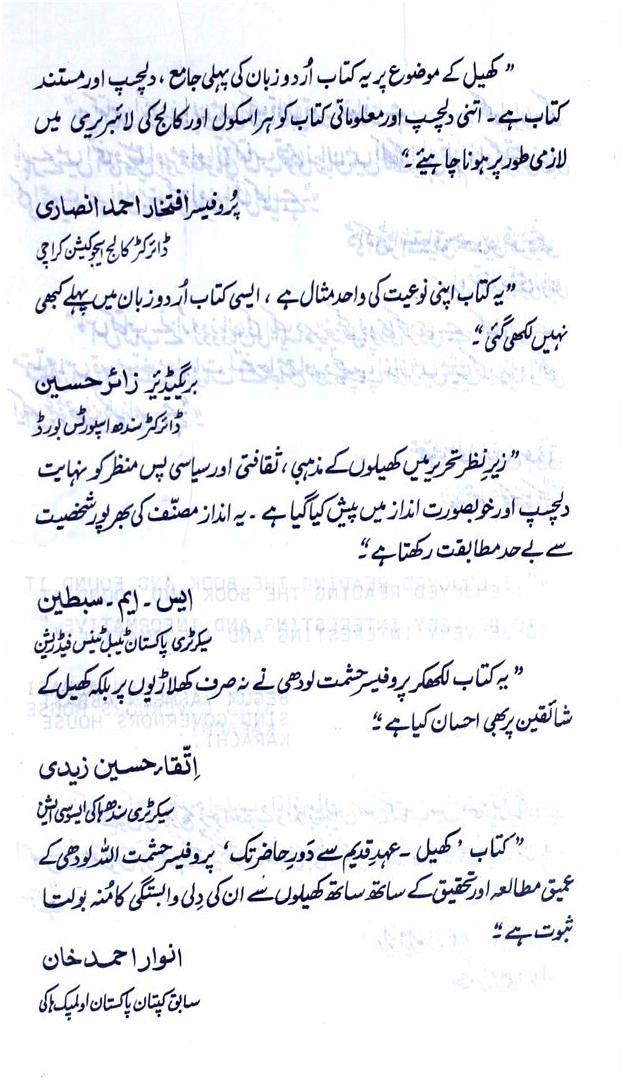 ”کھیل کے موضوع پر یہ کتاب اُردو زبان کی پہلی جامع ، دلچسپ اور مستند
کتاب ہے ۔ اتنی دلچسپ اور معلوماتی کتاب کو ہر اسکول اور کالج کی لائبریری میں
لازمی طور پر ہونا چاہیئے ۔“
پروفیسر افتخار احمد انصاری
ڈائرکٹر کالج ایجوکیشن کراچی
”یہ کتاب اپنی نوعیت کی واحد مثال ہے ، ایسی کتاب اُردو زبان میں پہلے کبھی
نہیں لکھی گئی ۔“
بریگیڈیر زائر حسین
ڈائرکٹر سندھ اسپورٹس بورڈ
”زیرِ نظر تحریر میں کھیلوں کے مذہبی ، ثقافتی اور سیاسی پس منظر کو نہایت
دلچسپ اور خوبصورت انداز میں پیش کیا گیا ہے ۔ یہ انداز مصنّف کی بھرپور شخصیت
سے بے حد مطابقت رکھتا ہے ۔“
ایس ۔ ایم ۔ سبطین
سیکرٹری پاکستان ٹیبل ٹینس فیڈریشن
”یہ کتاب لکھ کر پروفیسر حشمت لودھی نے نہ صرف کھلاڑیوں پر بلکہ کھیل کے
شائقین پر بھی احسان کیا ہے ۔“
اِتّقاء حسین زیدی
سیکرٹری سندھ ہاکی ایسوسی ایشن
”کتاب ’کھیل ۔ عہدِ قدیم سے دَورِ حاضر تک‘ پروفیسر حشمت اللہ لودھی کے
عمیق مطالعہ اور تحقیق کے ساتھ ساتھ کھیلوں سے ان کی دِلی وابستگی کا مُنہ بولتا
ثبوت ہے ۔“
انوار احمد خان
سابق کپتان پاکستان اولمپک ہاکی